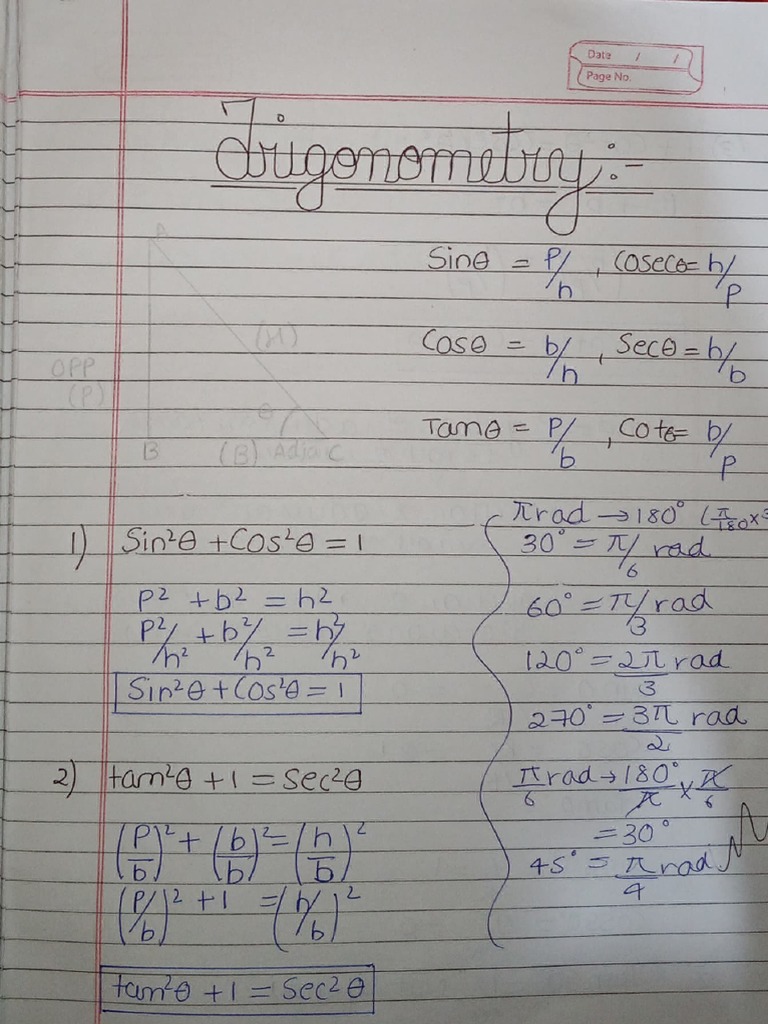 Date / /
Page No.
Trigonometry:-
Sinθ = P/h , Cosecθ = h/p
Cosθ = b/h , Secθ = h/b
Tanθ = P/b , Cotθ = b/p
A
(H)
OPP
(P)
θ
B (B) Adja C
1) Sin²θ + Cos²θ = 1
P² + b² = h²
P²/h² + b²/h² = h²/h²
Sin²θ + Cos²θ = 1
2) tan²θ + 1 = Sec²θ
(P/b)² + (b/b)² = (h/b)²
(P/b)² + 1 = (h/b)²
tan²θ + 1 = Sec²θ
π rad → 180° (π/180 ×
30° = π/6 rad
60° = π/3 rad
120° = 2π/3 rad
270° = 3π/2 rad
π/6 rad → 180°/π × π/6
= 30°
45° = π/4 rad